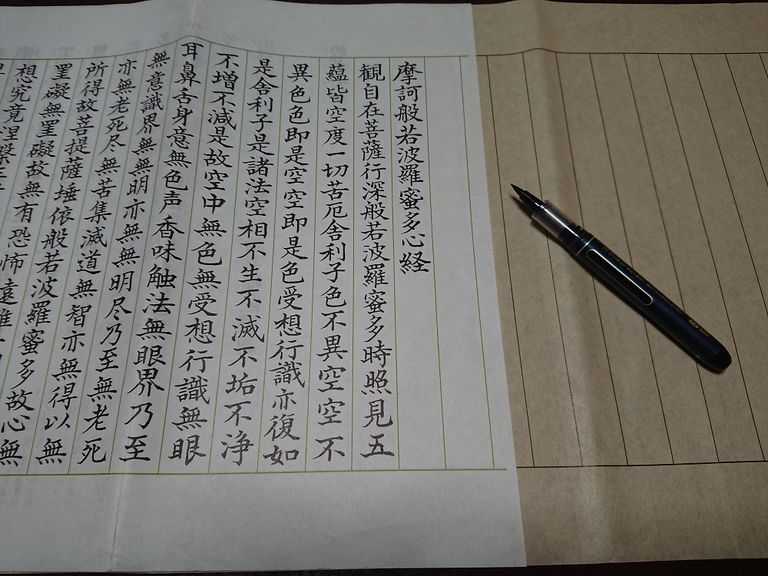 摩訶般若波羅蜜多心経
観自在菩薩行深般若波羅蜜多時照見五
蘊皆空度一切苦厄舎利子色不異空空不
異色色即是空空即是色受想行識亦復如
是舎利子是諸法空相不生不滅不垢不浄
不増不減是故空中無色無受想行識無眼
耳鼻舌身意無色声香味触法無眼界乃至
無意識界無無明亦無無明尽乃至無老死
亦無老死尽無苦集滅道無智亦無得以無
所得故菩提薩埵依般若波羅蜜多故心無
罣礙無罣礙故無有恐怖遠離
想究竟涅槃三